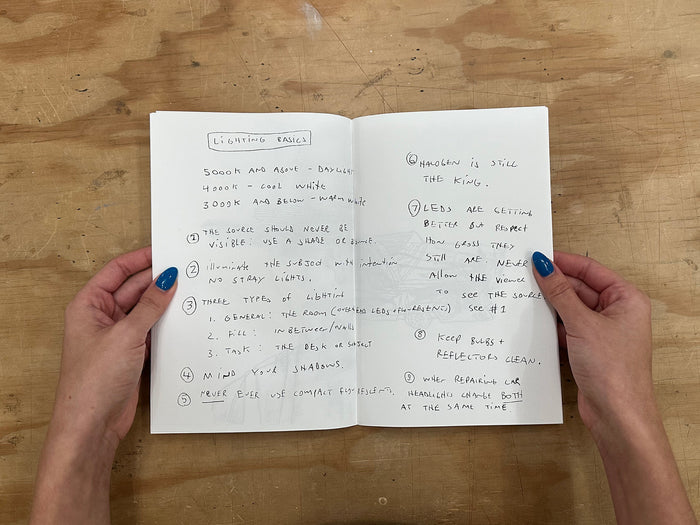 LIGHTING BASICS
5000K AND ABOVE - DAYLIGHT
4000K - COOL WHITE
3000K AND BELOW - WARM WHITE
① THE SOURCE SHOULD NEVER BE
VISIBLE: USE A SHADE OR BOUNCE.
② ILLUMINATE THE SUBJECT WITH INTENTION
NO STRAY LIGHTS.
③ THREE TYPES OF LIGHTING
1. GENERAL: THE ROOM (OVERHEAD LEDS + FLUORESCENT)
2. FILL: IN BETWEEN/WALLS
3. TASK: THE DESK OR SUBJECT
④ MIND YOUR SHADOWS.
⑤ NEVER EVER USE COMPACT FLUORESCENTS.
⑥ HALOGEN IS STILL
THE KING.
⑦ LEDS ARE GETTING
BETTER BUT RESPECT
HOW GROSS THEY
STILL ARE. NEVER
ALLOW THE VIEWER
TO SEE THE SOURCE
SEE #1
⑧ KEEP BULBS +
REFLECTORS CLEAN.
⑨ WHEN REPAIRING CAR
HEADLIGHTS CHANGE BOTH
AT THE SAME TIME